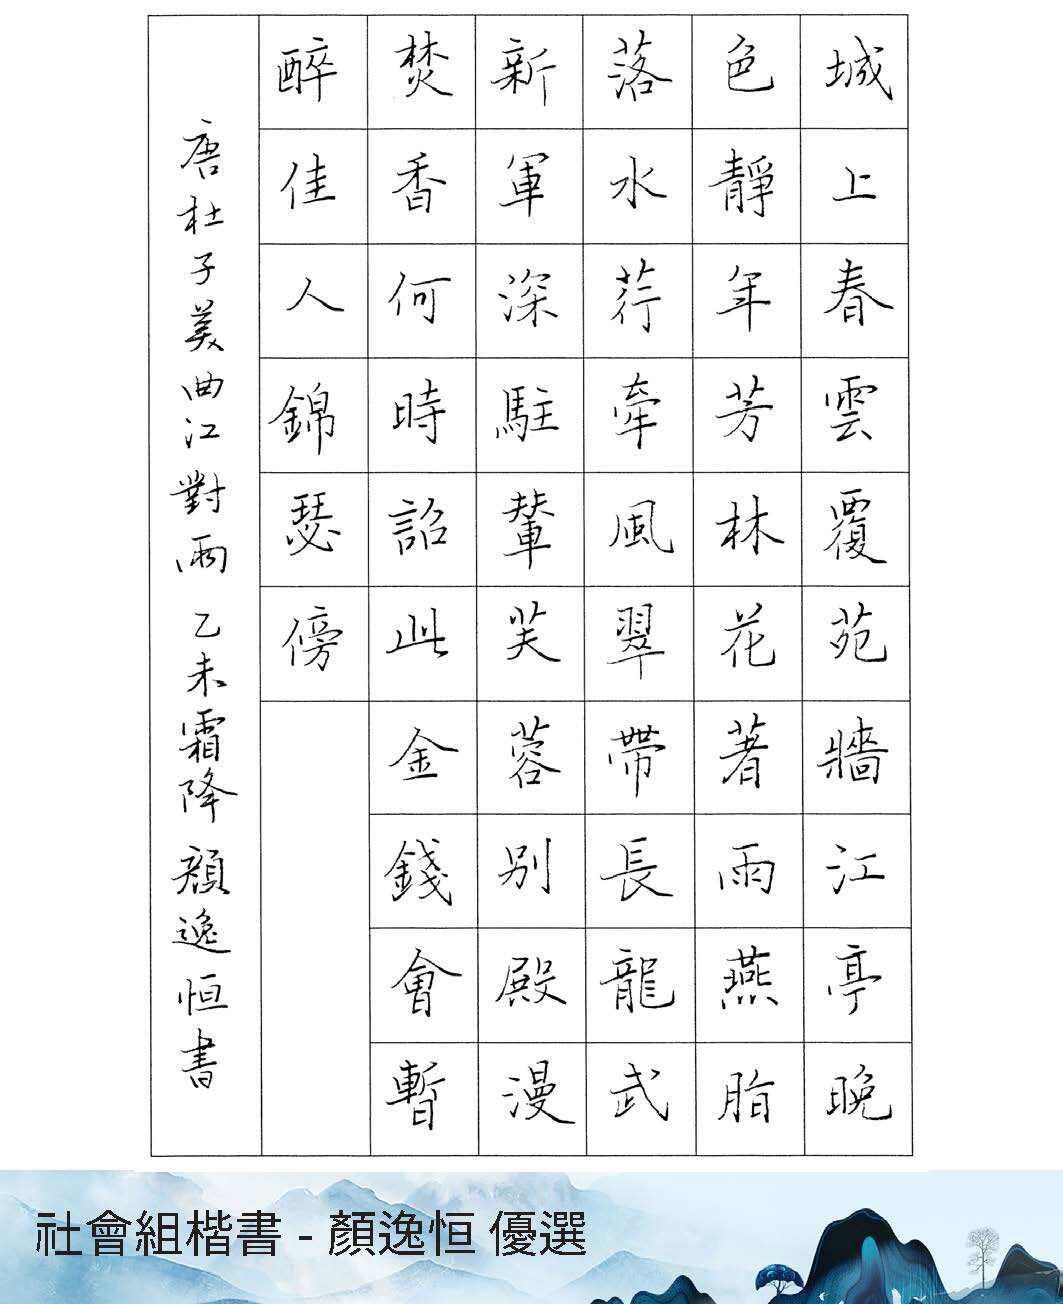 城上春雲覆苑牆江亭晚
色靜年芳林花著雨燕脂
落水荇牽風翠帶長龍武
新軍深駐輦芙蓉別殿漫
焚香何時詔此金錢會暫
醉佳人錦瑟傍
唐杜子美曲江對雨 乙未霜降 顏逸恒書
社會組楷書 - 顏逸恒 優選